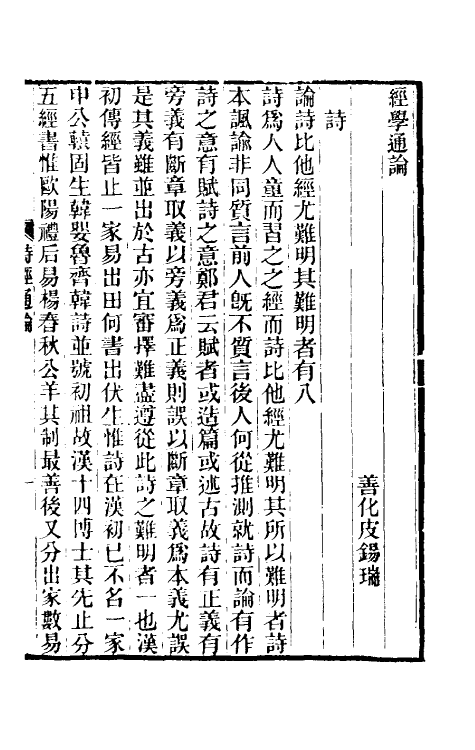 經學通論
善化皮錫瑞
詩
論詩比他經尤難明其難明者有八
詩爲人人童而習之之經而詩比他經尤難明其所以難明者詩
本諷諭非同質言前人旣不質言後人何從推測就詩而論有作
詩之意有賦詩之意鄭君云賦者或造篇或述古故詩有正義有
旁義有斷章取義以旁義爲正義則誤以斷章取義爲本義尤誤
是其義雖並出於古亦宜審擇難盡遵從此詩之難明者一也漢
初傳經皆止一家易出田何書出伏生惟詩在漢初已不名一家
申公轅固生韓嬰魯齊韓詩並號初祖故漢十四博士其先止分
五經書惟歐陽禮后易楊春秋公羊其制最善後又分出家數易
詩經通論
一